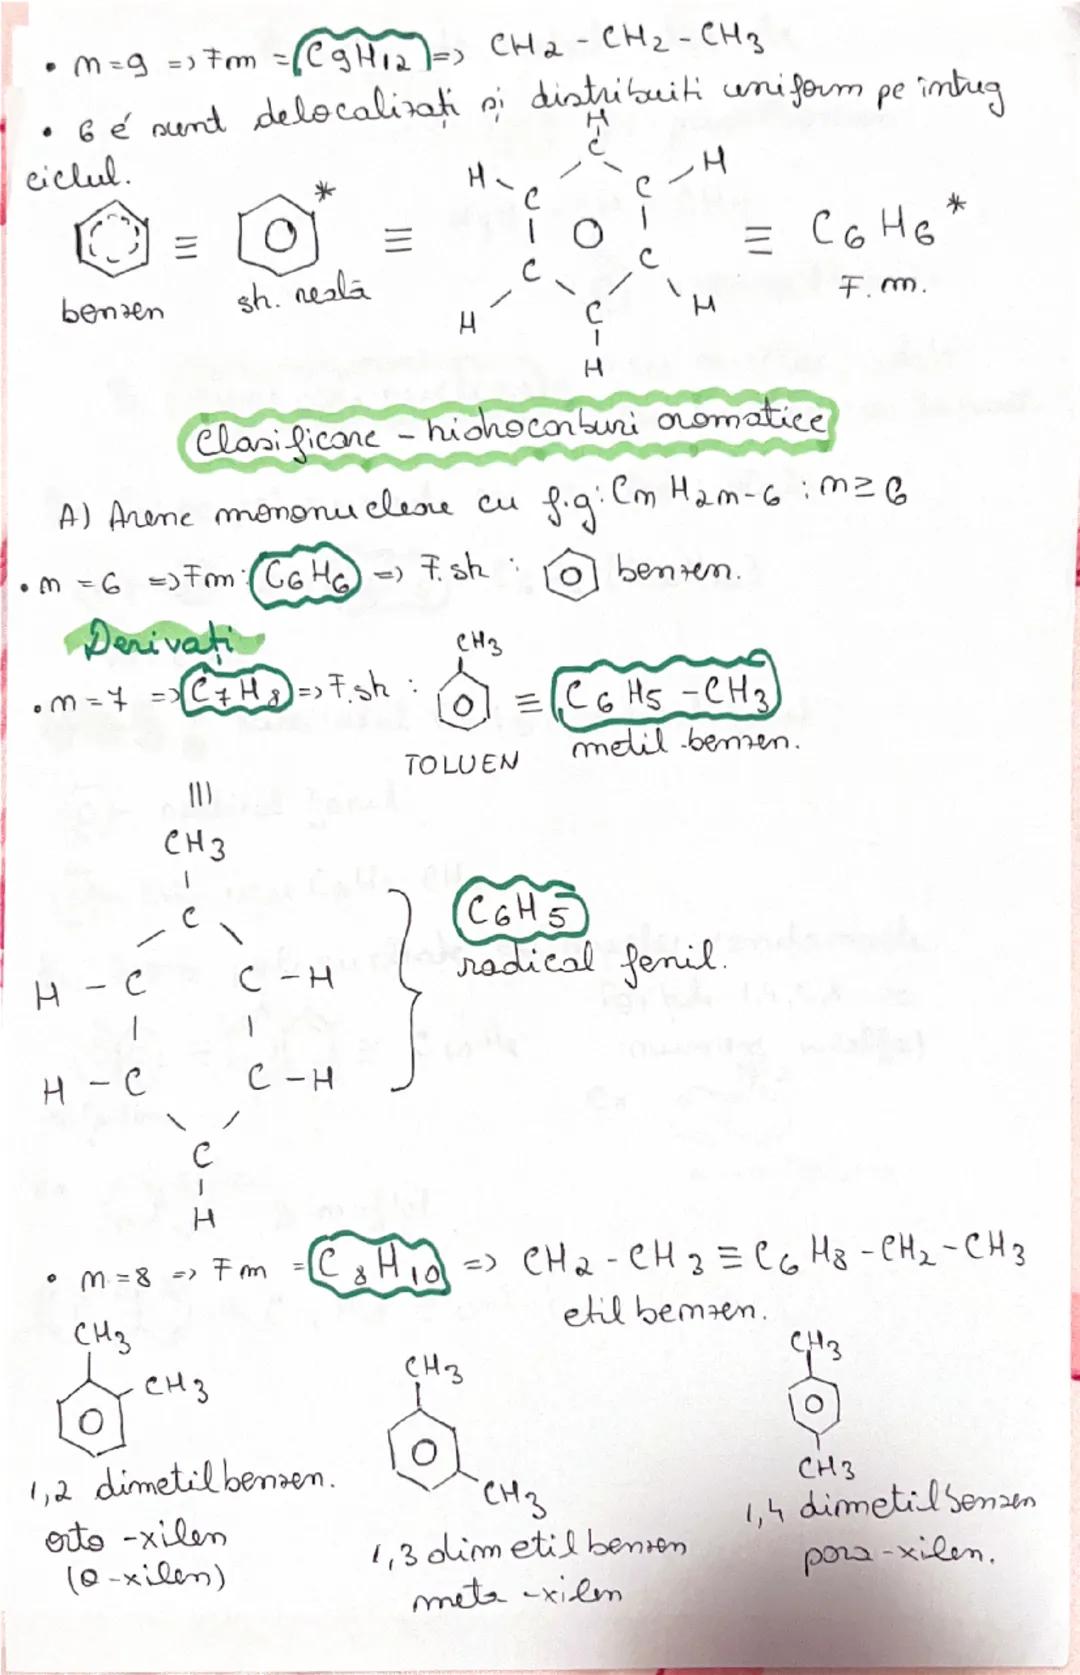 • n=9 => Fm = C9H12 => CH2 - CH2 - CH3
• 6 é sunt delocalizați și distribuiti uniform pe întreg
ciclul.
benzen ≡ sh. reală * ≡ H C H C C H C C H C H H ≡ C6H6 *
F.m.
Clasificare - hidrocarburi aromatice
A) Arene mononucleare cu f.g: CnH2n-6 ; n≥6
• n = 6 => Fm: C6H6 => F.sh : benzen.
Derivați
• n = 7 => C7H8 => F.sh : CH3 ≡ C6H5 - CH3
TOLUEN metil-benzen.
≡
CH3
C
H - C C - H
H - C C - H
C
H
C6H5
radical fenil.
• n=8 => Fm = C8H10 => CH2 - CH3 ≡ C6H8 - CH2 - CH3
etil benzen.
CH3
CH3
1,2 dimetilbenzen.
orto -xilen
(o-xilen)
CH3
CH3
1,3 dimetilbenzen
meta -xilen
CH3
CH3
1,4 dimetilbenzen
para-xilen.